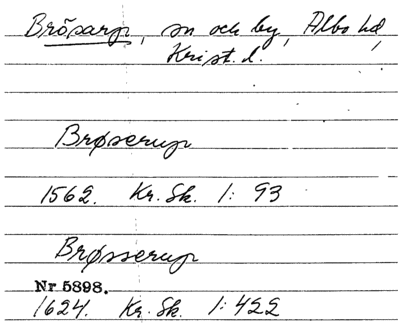 Brösarp, sn och by, Albo hd,
Krist. l.
Brøserup
1562. Kr. Sk. 1: 93
Brøsserup
Nr 5898.
1624. Kr. Sk. 1: 422